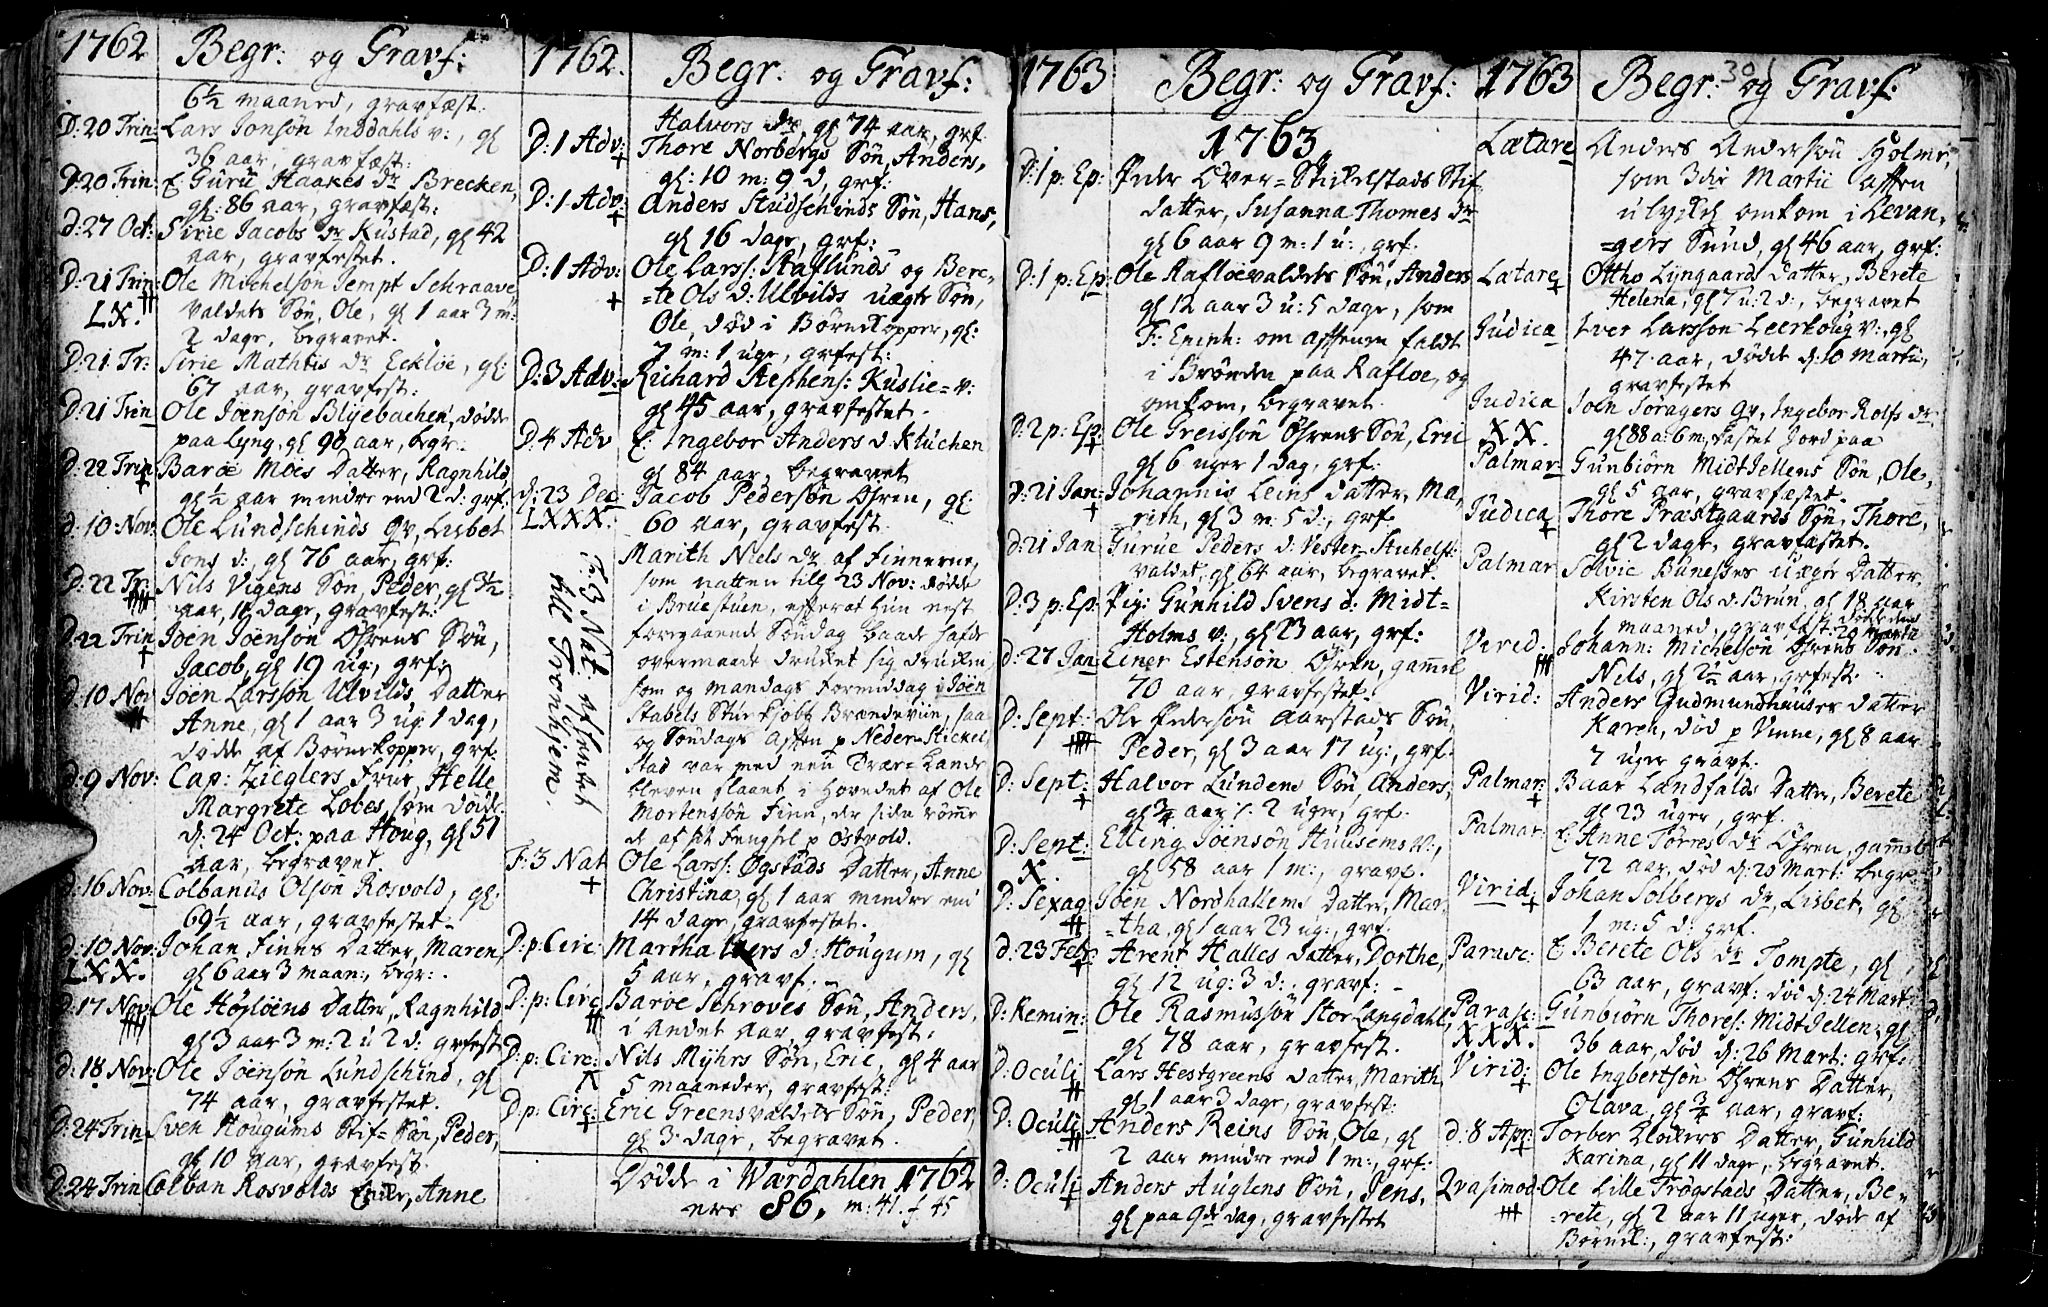 1762 Begr: og Gravf:
6½ maaned, gravfæst:
D: 20 Trin: Lars Jonsøn Inddahls v:, gl
36 aar, gravfæst:
D: 20 Trin: E. Guru Haakes dr Brecken,
gl: 86 aar, gravfæst:
d: 27 Oct: Sirie Jacobs dr Kustad, gl 42
aar, gravfestet.
D: 21 Trin: Ole Michelsøn Tempt Schraave
LX. valdets Søn, Ole, gl 1 aar 3 m:
2 dage, begravet.
D: 21 Tr: Sirie Mathtis dr Ecklöe, gl:
67 aar, gravfest:
D: 21 Trin Ole Joensøn Blÿebachen, dødde
paa Lyng, gl 90 aar, begr:
D: 22 Trin Baroe Moes Datter, Ragnhild,
gl ½ aar mindre end 2 d: grf:
d: 10 Nov: Ole Lundschinds qv, Lisbet
Jons d:, gl 76 aar, grf:
D: 22 Tr: Nils Vigens Søn, Peder, gl 3½
aar, 11 dage, gravfest:
D: 22 Trin Joen Joensøn Øhrens Søn,
Jacob, gl 19 ug:, grf:
D: 10 Nov Joen Larssøn Ulvilds, Datter
Anne, gl 1 aar 3 ug: 1 dag,
dødde af Børnekopper, grf.
d: 9 Nov: Cap: Zieglers Frue, Helle
Margrete Lobes, som døde
d: 24 Oct: paa Houg, gl 51
aar, begravet.
d: 16 Nov: Colbanus Olsøn Rosvold, gl:
69½ aar, gravfestet
d: 10 Nov: Johan Finns Datter, Maren,
LXX. gl 6 aar 3 maan:, begr:.
d: 17 Nov: Ole Höÿlöens Datter, Ragnhild
gl 3 aar 3 m: 2 u 2 d: grfest
d: 18 Nov: Ole Joensøn Lundschind, gl
74 aar, gravfestet.
D: 24 Trin Sven Hougums Stif=Søn, Peder,
gl 10 aar, gravfest.
D: 24 Trin Colban Rosvolds Enke, Anne
1762. Begr: og Gravf:
Halvors dr, gl 74 aar, grf
D: 1 Adv: Thore Norbergs Søn, Anders,
gl: 10 m: 9 d, grf:
D: 1 Adv: Anders Studschinds Søn, Hans,
gl 16 dage, grf:
D: 1 Adv: Ole Larss: Staflunds og Bere=
=te Ols d: Ulvilds uægte Søn,
Ole, død i Børnekopper, gl:
7 m: 1 uge, grfest:
D: 3 Adv: Richard Stephens: Kuslie=v:
gl 45 aar, gravfestet.
D: 4 Adv E: Ingebor Anders d. Kluchen
gl 84 aar, begravet
d: 23 Dec: Jacob Pedersøn Øhren, gl:
LXXX. 60 aar, gravfest.
F: 3 Nat: afhentet
till Tronhjem.
Marith Niels dr af Finnerne,
som natten till 23 Nov: dødde
i Bruestuen, efterat hun nest
foregaaende Søndag baade hafde
overmaade drukket sig drucken
som og Mandags Formiddag i Joen
Stabels Stue kjøbt Brændeviin, saa
og Søndags Aften p Neder=Stickel
stad var med een Trær=
bleven slaaet i Hovedet af Ole
Mortenssøn Finn, der siden römme
de af sit Fengsel p Østvold.
F: 3 Nat Ole Larss: Øgstads Datter, Anne
Christina, gl 1 aar mindre end
14 dage, gravfestet.
D: p: Circ: Martha Ivers d: Hougum, gl
5 aar, gravf.
D: p: Circ Baroe Schroves Søn, Anders,
i andet Aar, gravfest.
D: p: Circ: Nils Mÿhrs Søn, Eric, gl 4 aar
5 maaneder, gravfest:
D: p: Circ: Eric Greensvaldets Søn, Peder,
gl 3 dage, begravet.
Dødde i Wærdahlen 1762
ere 86. m: 41. f 45
1763 Begr: og Gravf:
1763
D: 1 p: Ep: Peder Over=Stickelstads Stif
datter, Susanna Thomes dr
gl 6 aar 9 m: 1 u:, grf.
D: 1 p: Ep: Ole Rafloevaldets Søn, Anders
gl 12 aar 3 u: 5 dage, som
F: Epiph: om aftenen faldt
i Brønden paa Rafloe, og
omkom, begravet.
D: 2 p: Ep: Ole Greissøn Øhrens Søn, Eric
gl 6 uger 1 dag, grf:
D: 21 Jan: Johannis Leins datter, Ma,
rith, gl 3 m: 5 d:, grf.
d: 21 Jan Gurue Peders d: Vester=Stubelst:
valdet, gl 64 aar, begravet.
D: 3 p: Ep: Pig: Gunhild Svens d: Midt=
Holms v:, gl 23 aar, grf:
d: 27 Jan: Einer Estensøn Øhren, gammel
70 aar, gravfestet.
D: Sept: Ole Pedersøn Aarstads Søn,
Peder, gl 3 aar 17 ug:, grf.
D: Sept: Halvor Lundens Søn, Anders,
gl ¾ aar ÷ 2 uger, grf.
D: Sept: Elling Joensøn Huusems v:,
X. gl 58 aar 1 m:, gravf.
D: Sexag Joen Nordhallems Datter, Mar,
=tha, gl 1 aar 23 ug:, grf.
d: 23 Febr Arent Halles Datter, Dorthe,
gl 12 ug: 3 d: gravf:
D: Remin: Ole Rasmussøn Stor Langdahl,
gl 78 aar, gravfest.
D: Oculi Lars Hestgreens datter, Marith
gl 1 aar 3 dage, gravfest:
D: Oculi Anders Reins Søn, Ole, gl
2 aar mindre end 1 m:, grf:
D: Oculi Anders Auglens Søn, Jens,
gl paa 9de dag, gravfestet
1763 Begr: og Gravf: 301
Lætare Anders Andersøn Holme,
som 3die Martii aften
ulyckel omkom i Levan,
=gers Sund, gl 46 aar, grf:
Lætare Ottho Lyngaard datter, Berete
Helena, gl 7 u: 2 d:, begravet
Judica Iver Larssøn Leerhoug v:, gl
47 aar, dødde d: 10 Martii,
gravfestet
Judica Joen Soragers qv, Ingebor Rolfs dr
XX. gl 88 a: 6 m: kastet Jord paa
Palmar: Gunbiørn MidtJellens Søn, Ole,
gl 5 aar, gravfæstet.
Judica Thore Præstgaards Søn, Thore,
gl 2 dage, gravfæstet.
Palmar Solvie Bunesses uægte Datter,
Kirsten Ols d: Brun, gl 18 aar
1 maaned, gravfest: dødde den 20 Martii
Virid: Johann: Michelsøn Øhrens Søn
Nils, gl 2½ aar, grfest:
Virid: Anders Gudmundhuuses datter
Karen, død p Vinne, gl 8 aar
7 uger gravf.
Palmar: Baar Landfalds Datter, Berete
gl 23 uger, grf.
Palmar: E: Anne Torres dr Øhren, gammel
72 aar, død d: 20 Mart: begr:
Virid: Johan Solbergs dr, Lisbet, gl
1 m: 5 d: grf.
Parasc: E Berete Ols dr Tompte, gl
63 aar, gravf: død d: 24 Marti
Parasc: Gunbiørn Thores: MidtJellen, gl
XXX. 36 aar, død d: 26 Mart: grf:
Virid: Ole Ingbertsøn Øhrens Datter,
Olava, gl ¾ aar, gravf:
d: 8 Apr: Torber Klokers Datter, Gunhild
Karina, gl 11 dage, begravet.
Qvasimod: Ole Lille Trøgstads Datter, Be=
=rete, gl 2 aar 11 uger, døde af
Børnek:, gravfest: